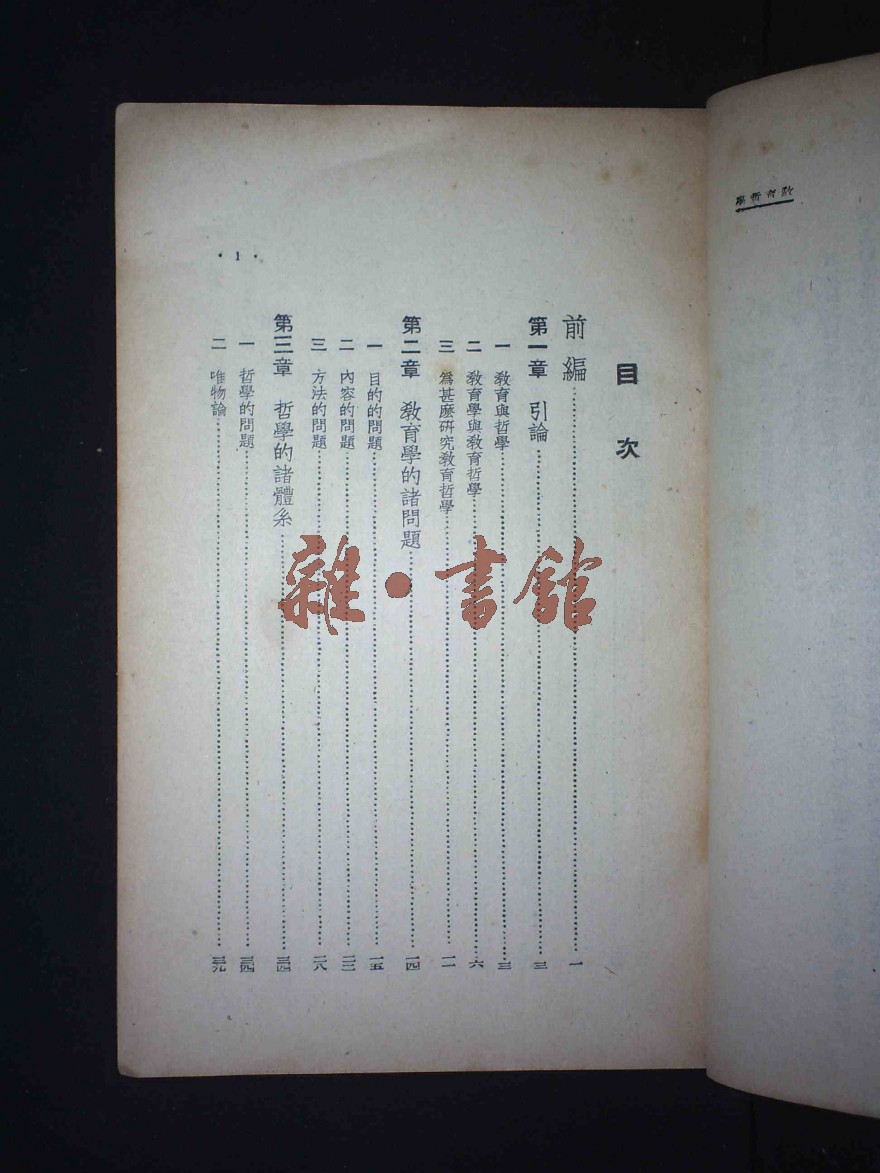 教育哲學
目次
前編…………一
第一章 引論…………三
一 教育與哲學…………三
二 教育學與教育哲學…………六
三 爲甚麽研究教育哲學…………一一
第二章 教育學的諸問題…………一四
一 目的的問題…………一五
二 內容的問題…………二三
三 方法的問題…………二八
第三章 哲學的諸體系…………三四
一 哲學的問題…………三四
二 唯物論…………三九
· 1 ·
雜·書館